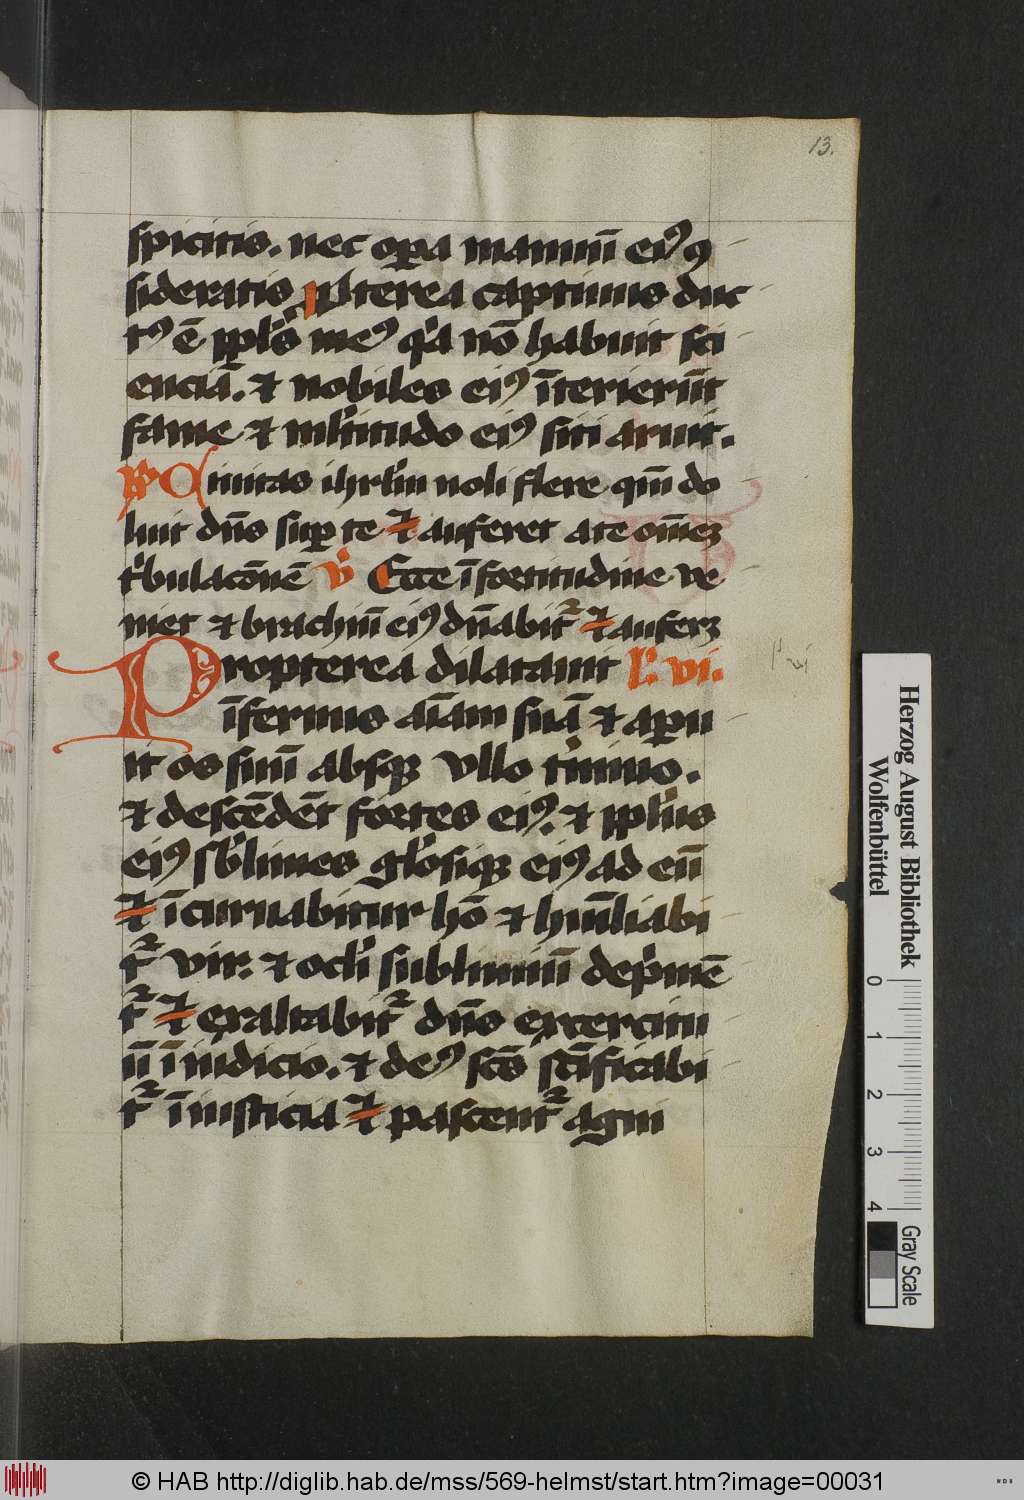 13.
spicitis. nec op̲a manuū ei⁹ ꝯ
sideratis ꝓpterea captiuus duc
t⁹ ē ppl̓s me⁹ q̓a nō habuit sci
enciā. et nobiles ei⁹ īterierūt
fame et ml̓titudo ei⁹ siti aruit.
R̸ Ciuitas ihrl̓m noli flere qm̄ do
luit dn̄s sup̲ te et auferet a te om̄eȝ
t̓bulacōnē v̓ Ecce ī fortitudine ve
niet et brachiū ei⁹ dn̄abit᷑ et auferȝ
Propterea dilatauit l̓. vi.
īfernus aīam suā et ap̲u
it os suū absqꝫ vllo t̓mino.
et descēdēt fortes ei⁹. et ppl̓us
ei⁹ sb̓limes gl̓osiqꝫ ei⁹ ad eū
et īcuruabitur hō et hūliabi
t᷑ vir. et ocl̓i sublimiū dep̓mē
t᷑ et exaltabit᷑ dn̄s exercitu
ū ī iudicio. et de⁹ scs̄ sc̄ificabi
t᷑ ī iusticia et pascent᷑ agni
Herzog August Bibliothek
Wolfenbüttel
0 1 2 3 4
Gray Scale
© HAB http://diglib.hab.de/mss/569-helmst/start.htm?image=00031